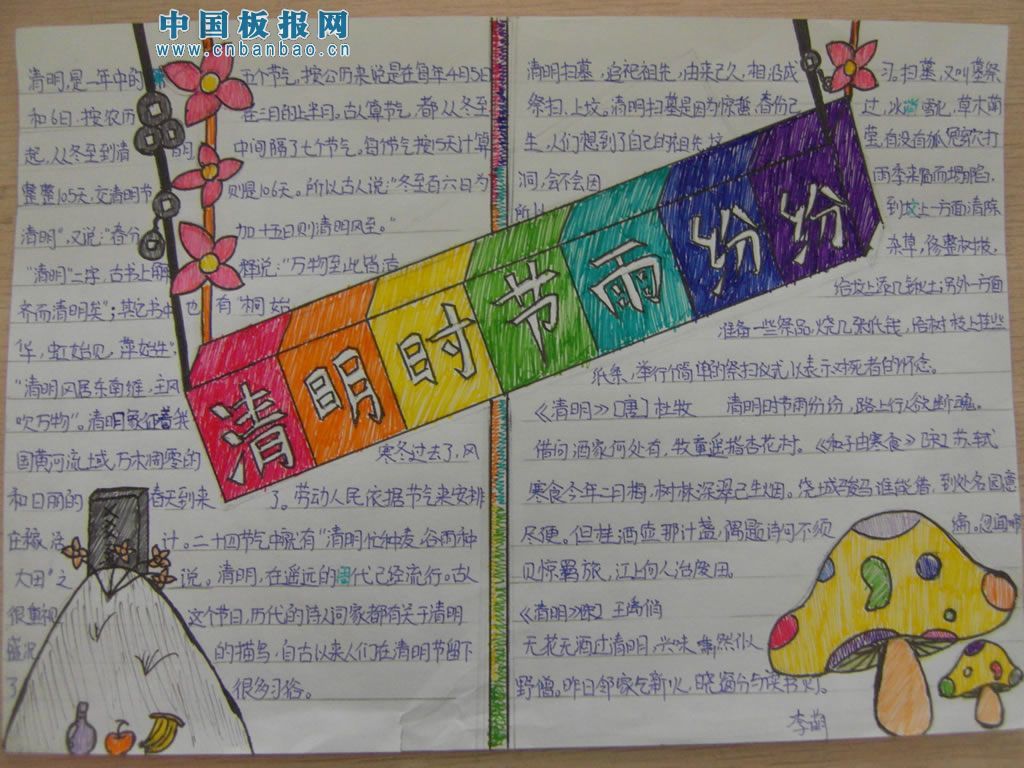 中国板报网
www.cnbanbao.cn
清明时节雨纷纷
清明,是一年中的 五个节气,按公历来说是在每年4月5日
和6日,按农历 在三月的上半月。古人算节气,都从冬至
起,从冬至到清明, 中间隔了七个节气。每个节气按15天计算
整整105天,交清明节 则是106天。所以古人说:“冬至百六日为
清明”,又说:“春分 加十五日则清明风至。”
“清明”二字,古书上 释说:“万物至此皆洁
齐而清明矣”;其它书中也有“桐始
华,虹始见,萍始生”,
“清明风居东南维,主风
吹万物”。清明象征着我
国黄河流域,万木凋零的 寒冬过去了,风
和日丽的 春天到来 了。劳动人民依据节气来安排
庄稼活 计。二十四节气中就有“清明忙种麦,谷雨种
大田”之 说。清明,在遥远的 代已经流行。古人
很重视 这个节日,历代的诗人词家都有关于清明
盛况 的描写,自古以来人们在清明节留下
了 很多习俗。
清明扫墓,追祀祖先,由来已久,相沿成 习。扫墓,又叫墓祭
祭扫、上坟。清明扫墓是因为 过,冰 雪化,草木萌
生,人们想到了自己的祖先 茔,有没有狐兔穿穴打
洞,会不会因 雨季来临而塌陷,
所以 到坟上一方面清除
杂草,修整树枝,
给坟上添几锹土;另外一方面
准备一些祭品,烧几张纸钱,给树枝上挂些
纸条,举行个简单的祭扫仪式,以表示对死者的怀念。
《清明》〔唐〕杜牧 清明时节雨纷纷,路上行人欲断魂。
借问酒家何处有,牧童遥指杏花村。《和子由寒食》 苏轼
寒食今年二月梅,树林深翠已生烟。绕城骏马谁能借,到处名园意
尽便。但挂酒壶那计盏,偶题诗句不须 编。忽闻啼
贝惊羁旅,江上何人治废田。
《清明》 王禹偁
无花无酒过清明,兴味 然似
野僧。昨日邻家乞新火,晓窗分与读书灯。
李萌